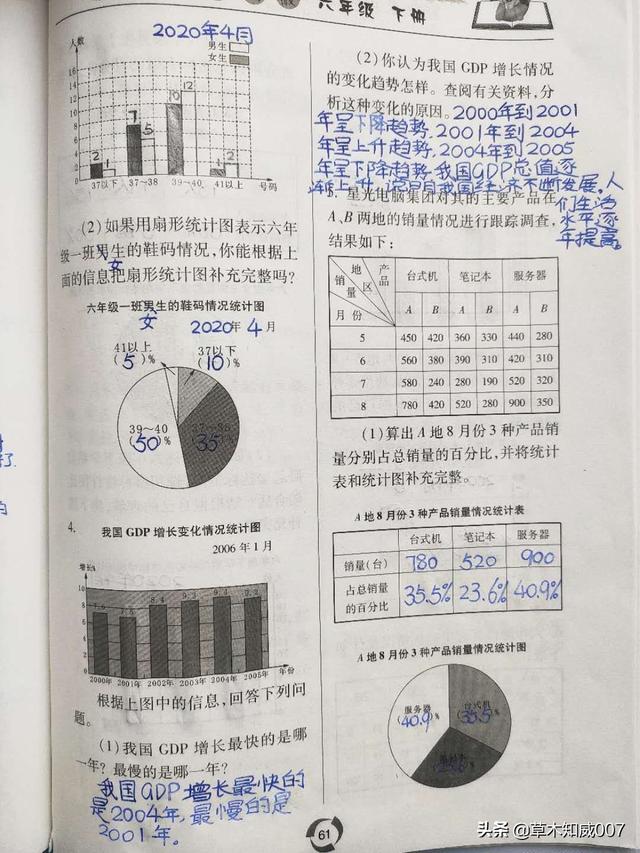 六年级 下册
2020年4月
人数
男生
女生
16
14
12
10
8
6
4
2
0
2 1 7 5 10 12 1 2
37以下 37~38 39~40 41以上 号码
(2)如果用扇形统计图表示六年
级一班男生的鞋码情况,你能根据上
女
面的信息把扇形统计图补充完整吗?
六年级一班男生的鞋码情况统计图
女 2020年4月
41以上 37以下
(5)% (10)%
39~40 37~38
(50)% (35)%
4.
我国GDP增长变化情况统计图
2006年1月
增长/%
10
8
6
4
2
0
8.4 9.3
2000年 2001年 2002年 2003年 2004年 2005年 年份
根据上图中的信息,回答下列问
题。
(1)我国GDP增长最快的是哪
一年?最慢的是哪一年?
我国GDP增长最快的
是2004年,最慢的是
2001年。
(2)你认为我国GDP增长情况
的变化趋势怎样。查阅有关资料,分
析这种变化的原因。2000年到2001
年呈下降趋势.2001年到2004
年呈上升趋势.2004年到2005
年呈下降趋势.我国GDP总值逐
渐上升,说明我国经济不断发展.人
们生活
水平逐
年提高。
5. 星光电脑集团对其的主要产品在
A、B两地的销量情况进行跟踪调查,
结果如下:
产品 地区 销量 月份 台式机 笔记本 服务器
A B A B A B
5 450 420 360 330 440 280
6 560 380 390 310 420 310
7 580 240 280 190 520 320
8 780 420 520 280 900 350
(1)算出A地8月份3种产品销
量分别占总销量的百分比,并将统计
表和统计图补充完整。
A地8月份3种产品销量情况统计表
台式机 笔记本 服务器
销量(台) 780 520 900
占总销量的百分比 35.5% 23.6% 40.9%
A地8月份3种产品销量情况统计图
服务器 台式机
(40.9%) (35.5%)
61
头条@草木知威007